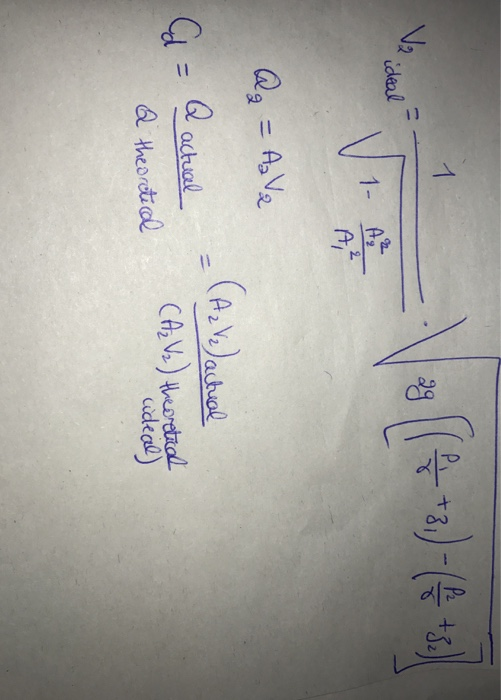 V₂ ideal = 1 / √(1 - A₂²/A₁²) · √(2g[(P₁/γ + z₁) - (P₂/γ + z₂)])
Q₂ = A₂V₂
Cd = Q actual / Q theoretical = (A₂V₂) actual / (A₂V₂) theoretical (ideal)